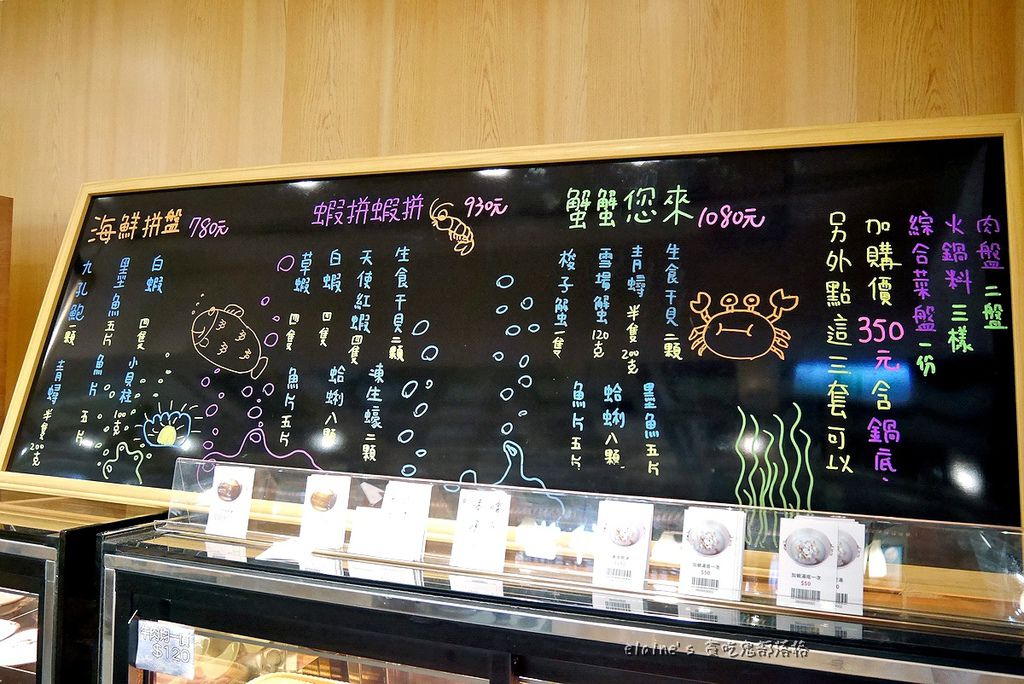 海鮮拼盤 780元
白蝦 四隻
墨魚 五片
九孔鮑 一顆
小貝柱 100克
魚片 五片
青蟳 半隻 200克
蝦拼蝦拼 930元
生食干貝 二顆
天使紅蝦 四隻
白蝦 四隻
草蝦 四隻
凍生蠔 二顆
蛤蜊 八顆
魚片 五片
蟹蟹您來 1080元
生食干貝 二顆
青蟳 半隻 200克
雪場蟹 120克
梭子蟹 一隻
墨魚 五片
蛤蜊 八顆
魚片 五片
另外點這三套可以
加購價350元含鍋底、
綜合菜盤 一份
火鍋料 三樣
肉盤 二盤
加蝦滿底一次
$50
$50
$120
elaine's 貪吃鬼部落格